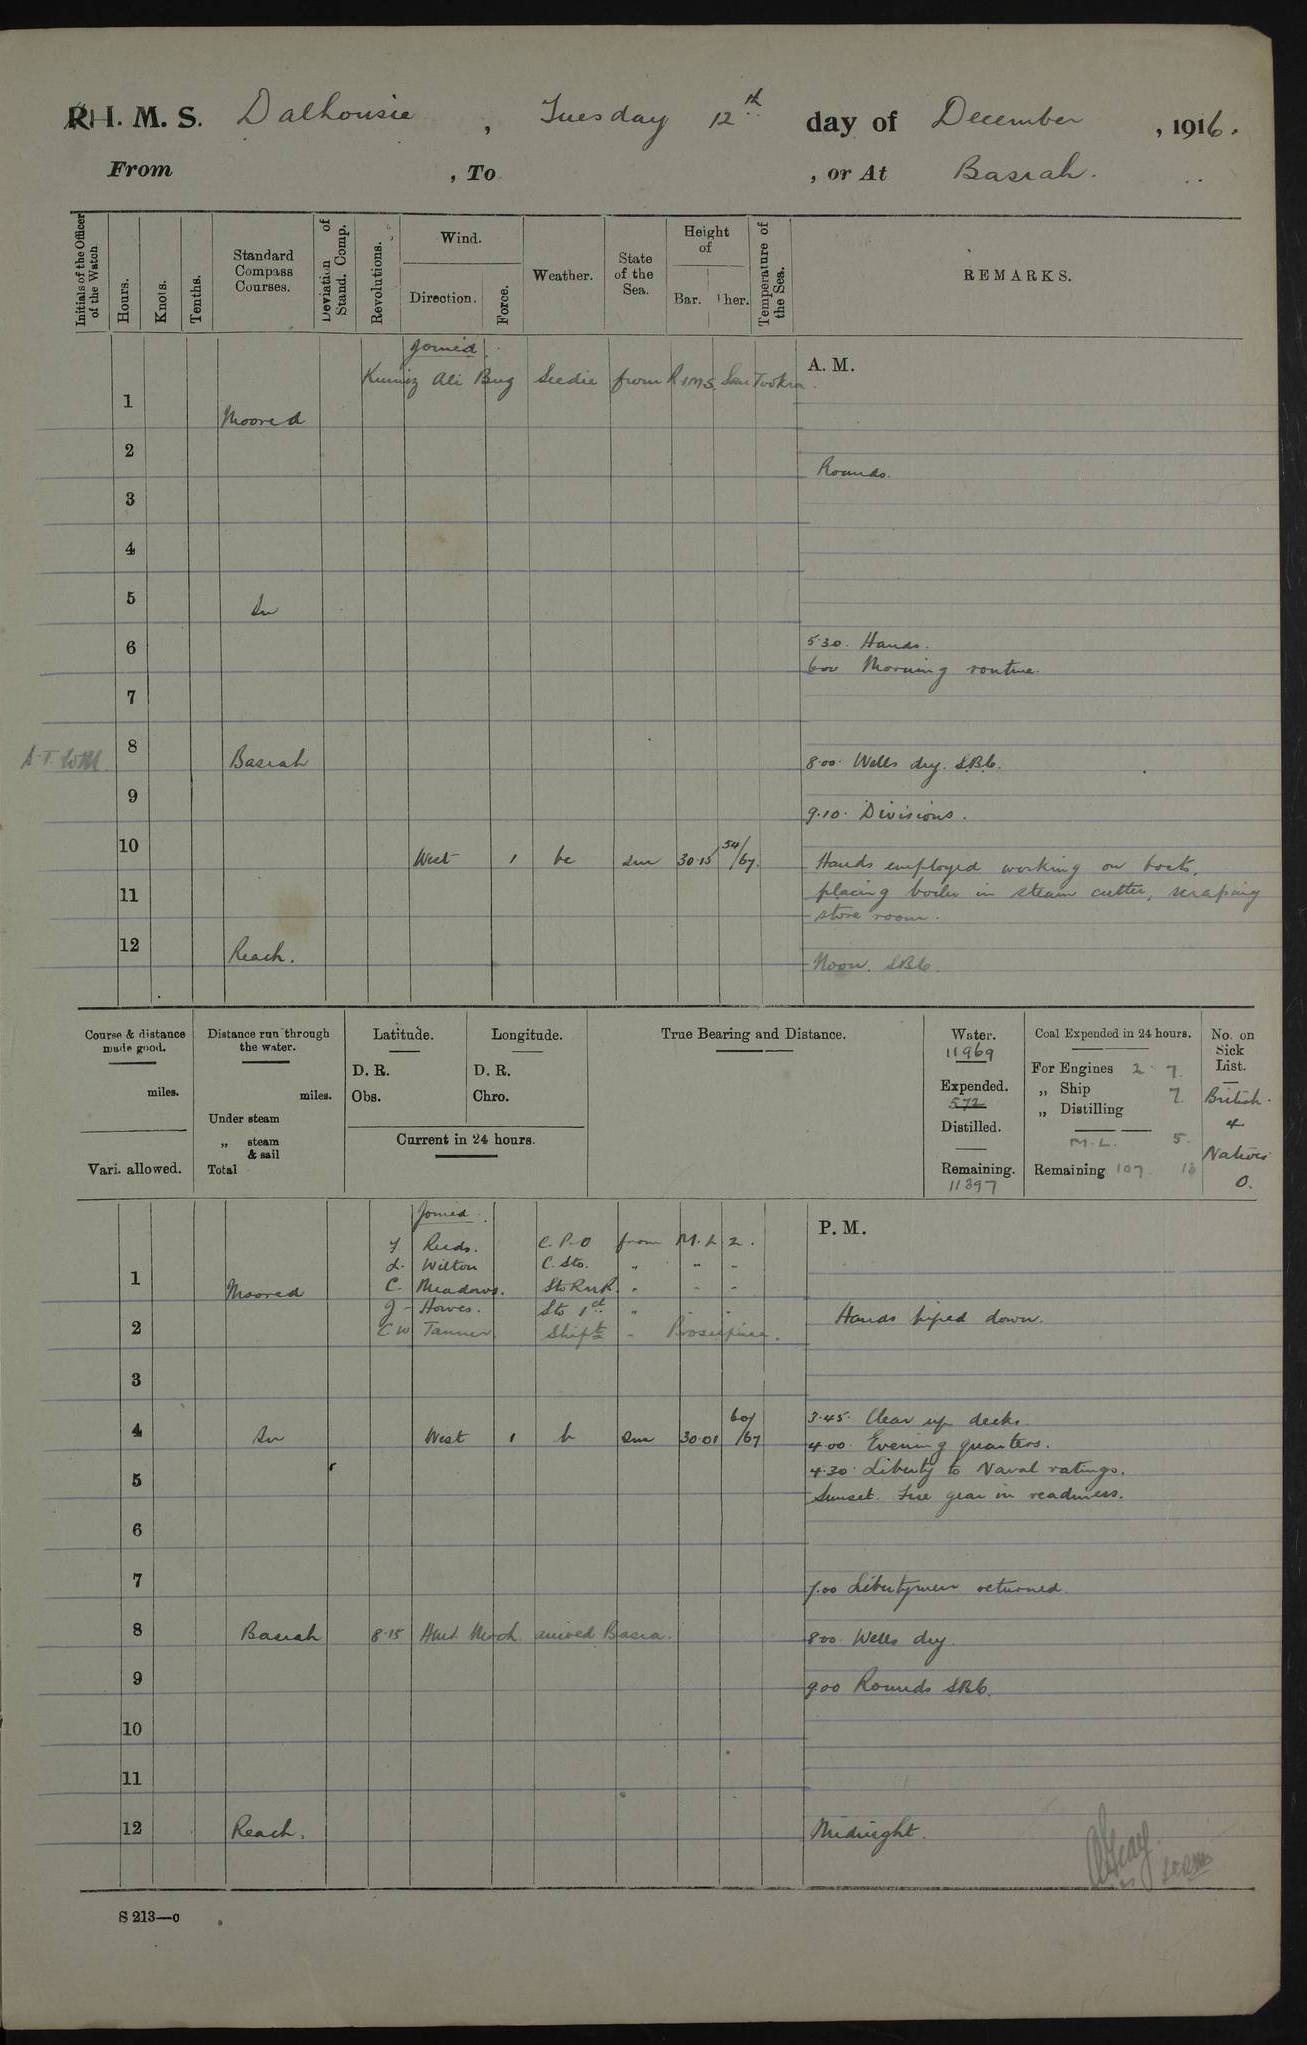 R.I.M.S. Dalhousie, Tuesday 12th day of December, 1916.
From , To , or At Basrah.
Initials of the Officer of the Watch
Hours.
Knots.
Tenths.
Standard Compass Courses.
Deviation of Stand. Comp.
Revolutions.
Wind.
Direction.
Force.
Weather.
State of the Sea.
Height of
Bar.
Ther.
Temperature of the Sea.
REMARKS.
Joined
Ali Bug Seedie from R.I.M.S.
A. M.
1 Moored
2 Rounds.
3
4
5 In
6 5.30. Hands.
6.00 Morning routine.
7
8 Basrah 8.00. Wells dry. S.B.C.
9 9.10. Divisions.
10 West 1 bc sm 30.15 54/67. Hands employed working on boats,
11 placing boiler in steam cutter, scraping
store room.
12 Reach. Noon. S.B.C.
Course & distance made good.
miles.
Vari. allowed.
Distance run through the water.
miles.
Under steam
„ steam & sail
Total
Latitude.
D. R.
Obs.
Longitude.
D. R.
Chro.
Current in 24 hours.
True Bearing and Distance.
Water.
11969
Expended.
572
Distilled.
Remaining.
11397
Coal Expended in 24 hours.
For Engines 2 7
„ Ship 7
„ Distilling
M.L. 5.
Remaining 107 13
No. on Sick List.
British.
4
Natives
0.
Joined. P. M.
Reids. C.P.O from M.L 2.
L. Wilton C. Sto. „ „ „
1 Moored C. Meadows. Sto R.N.R. „ - -
J - Howes. Sto 1st „ - -
2 C W Tanner Shipt - Proserpine. Hands piped down.
3
3.45. Clear up decks.
4 In West 1 b sm 30.01 60/67 4.00 Evening quarters.
4.30. Liberty to Naval ratings.
5 Sunset. Fire gear in readiness.
6
7 7.00 Libertymen returned.
8 Basrah 8.15 arrived Basra. 8.00 Wells dry.
9 9.00 Rounds S.B.C.
10
11
12 Reach. Midnight.
S 213—o